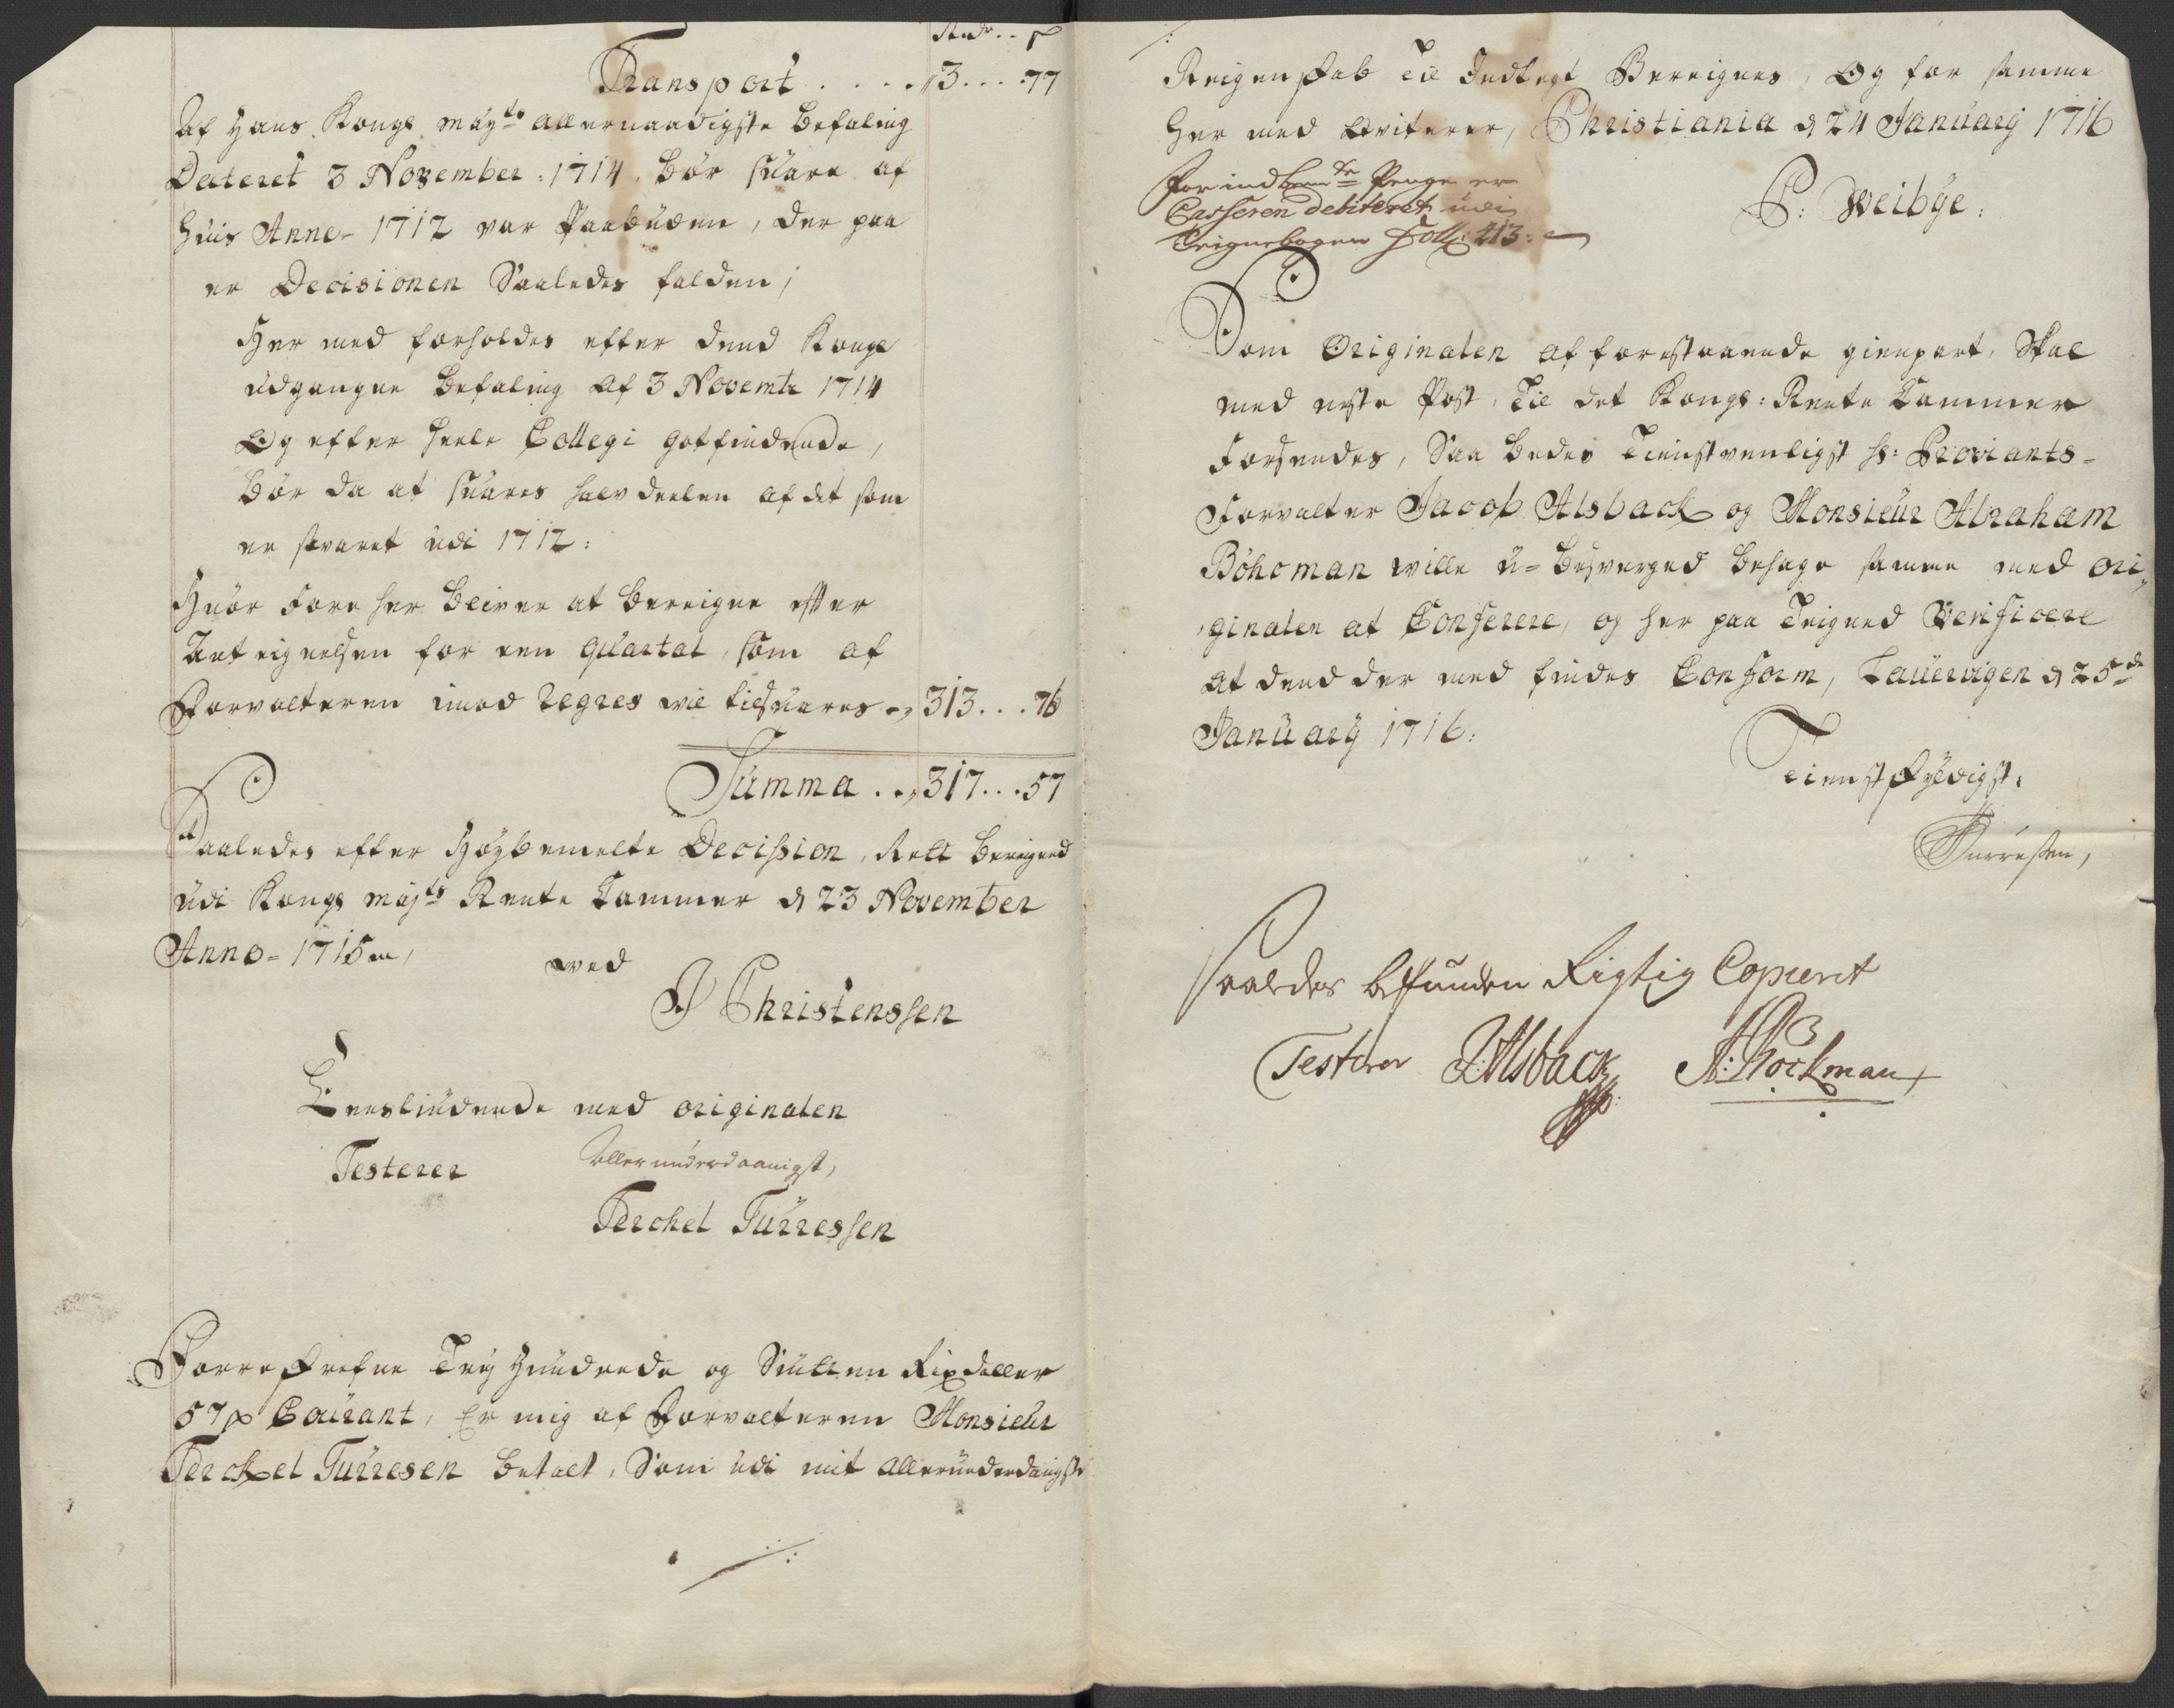 Rdr . . ß
Transport . . . . . 3 . . . 77
Af Hans Kongl. mayts allernaadigste Befaling
Dateret 3 November: 1714. bør suare af
huis Anno- 1712 var Paabuden, der paa
er Decisionen Saaledes falden;
Her med forholdes efter dend Kongl
udgangne Befaling af 3 Novembr 1714
Og efter heele Collegi gotfindende,
bør da at suares halvdeelen af det som
er svaret udi 1712:
Huor fore her blever at bereigne efter
Anteignelsen for een quartal, som af
Forvalteren imod regres vil tilsuares - 313 . . . 76
Summa . . 317 . . . 57
Saaledes efter Høybemelte Decission, Rett bereigned
udi Kongl mayts Rente Cammer d 23 November
Anno- 1715
ved
J Christenssen
Eenslüdende med originalen
Testerer
Allerunderdaanigst,
Terchel Turressen
Forreskrefne Trey Hundrede og Siutten Rixdaller
57 ß Courant, Er mig af Forvalteren Monsieur
Terckel Turresen betalt, Som udi mit allerunderdanigste
./:
/:
Reigenskab til Indtegt Bereignes, Og for samme
her med Qviterer, Christiania d 24 January 1716
For indbemte Penge er
Casseren debiteret udi
Teignebogen Foll: 213:
P: Weibye:
Som Originalen af forestaaende gienpart, Skal
med neste Post, til det Kongl: Rente Cammer
Forsendes, Saa bedes tienstvenligst hr: Proviants-
Forvalter Jacob Alsback og Monsieur Abraham
Böhcman wille u-besverged behage samme med ori-
ginalen at Conferere, og her paa teigned Verificere
at dend der med findes Conform, Lauervigen d 25de
January 1716:
Tienstskyldigst,
Turresen,
Saaledes befunden Rigtig Copieret
Testerer J: Alsback A: Böckman